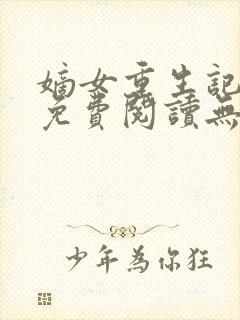 嫡女重生記
免費閱讀無
少年為你狂